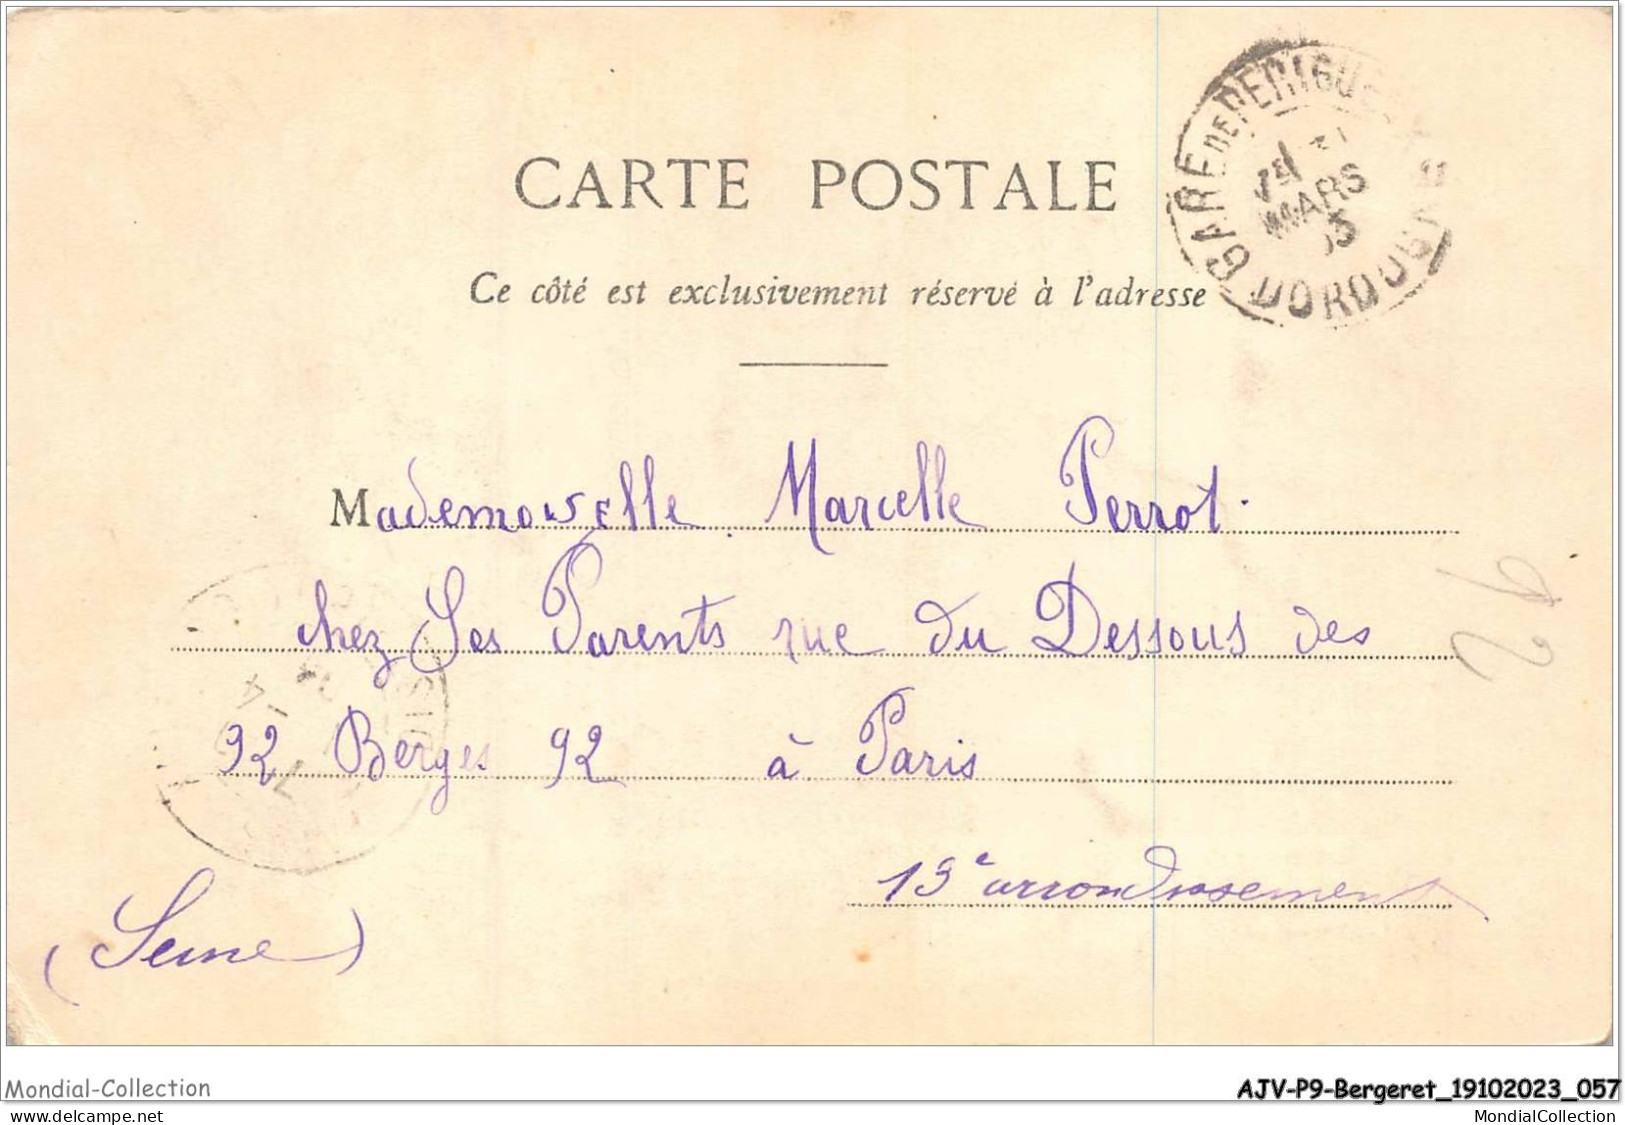 CARTE POSTALE
Ce côté est exclusivement réservé à l'adresse
GARE DE PERIGUEUX
MARS
03
DORDOGNE
Mademoiselle Marcelle Perrot.
chez Ses Parents rue du Dessous des
92 Berges 92 à Paris
13e arrondissement
(Seine)
92
Mondial-Collection
AJV-P9-Bergeret_19102023_057
www.delcampe.net
MondialCollection